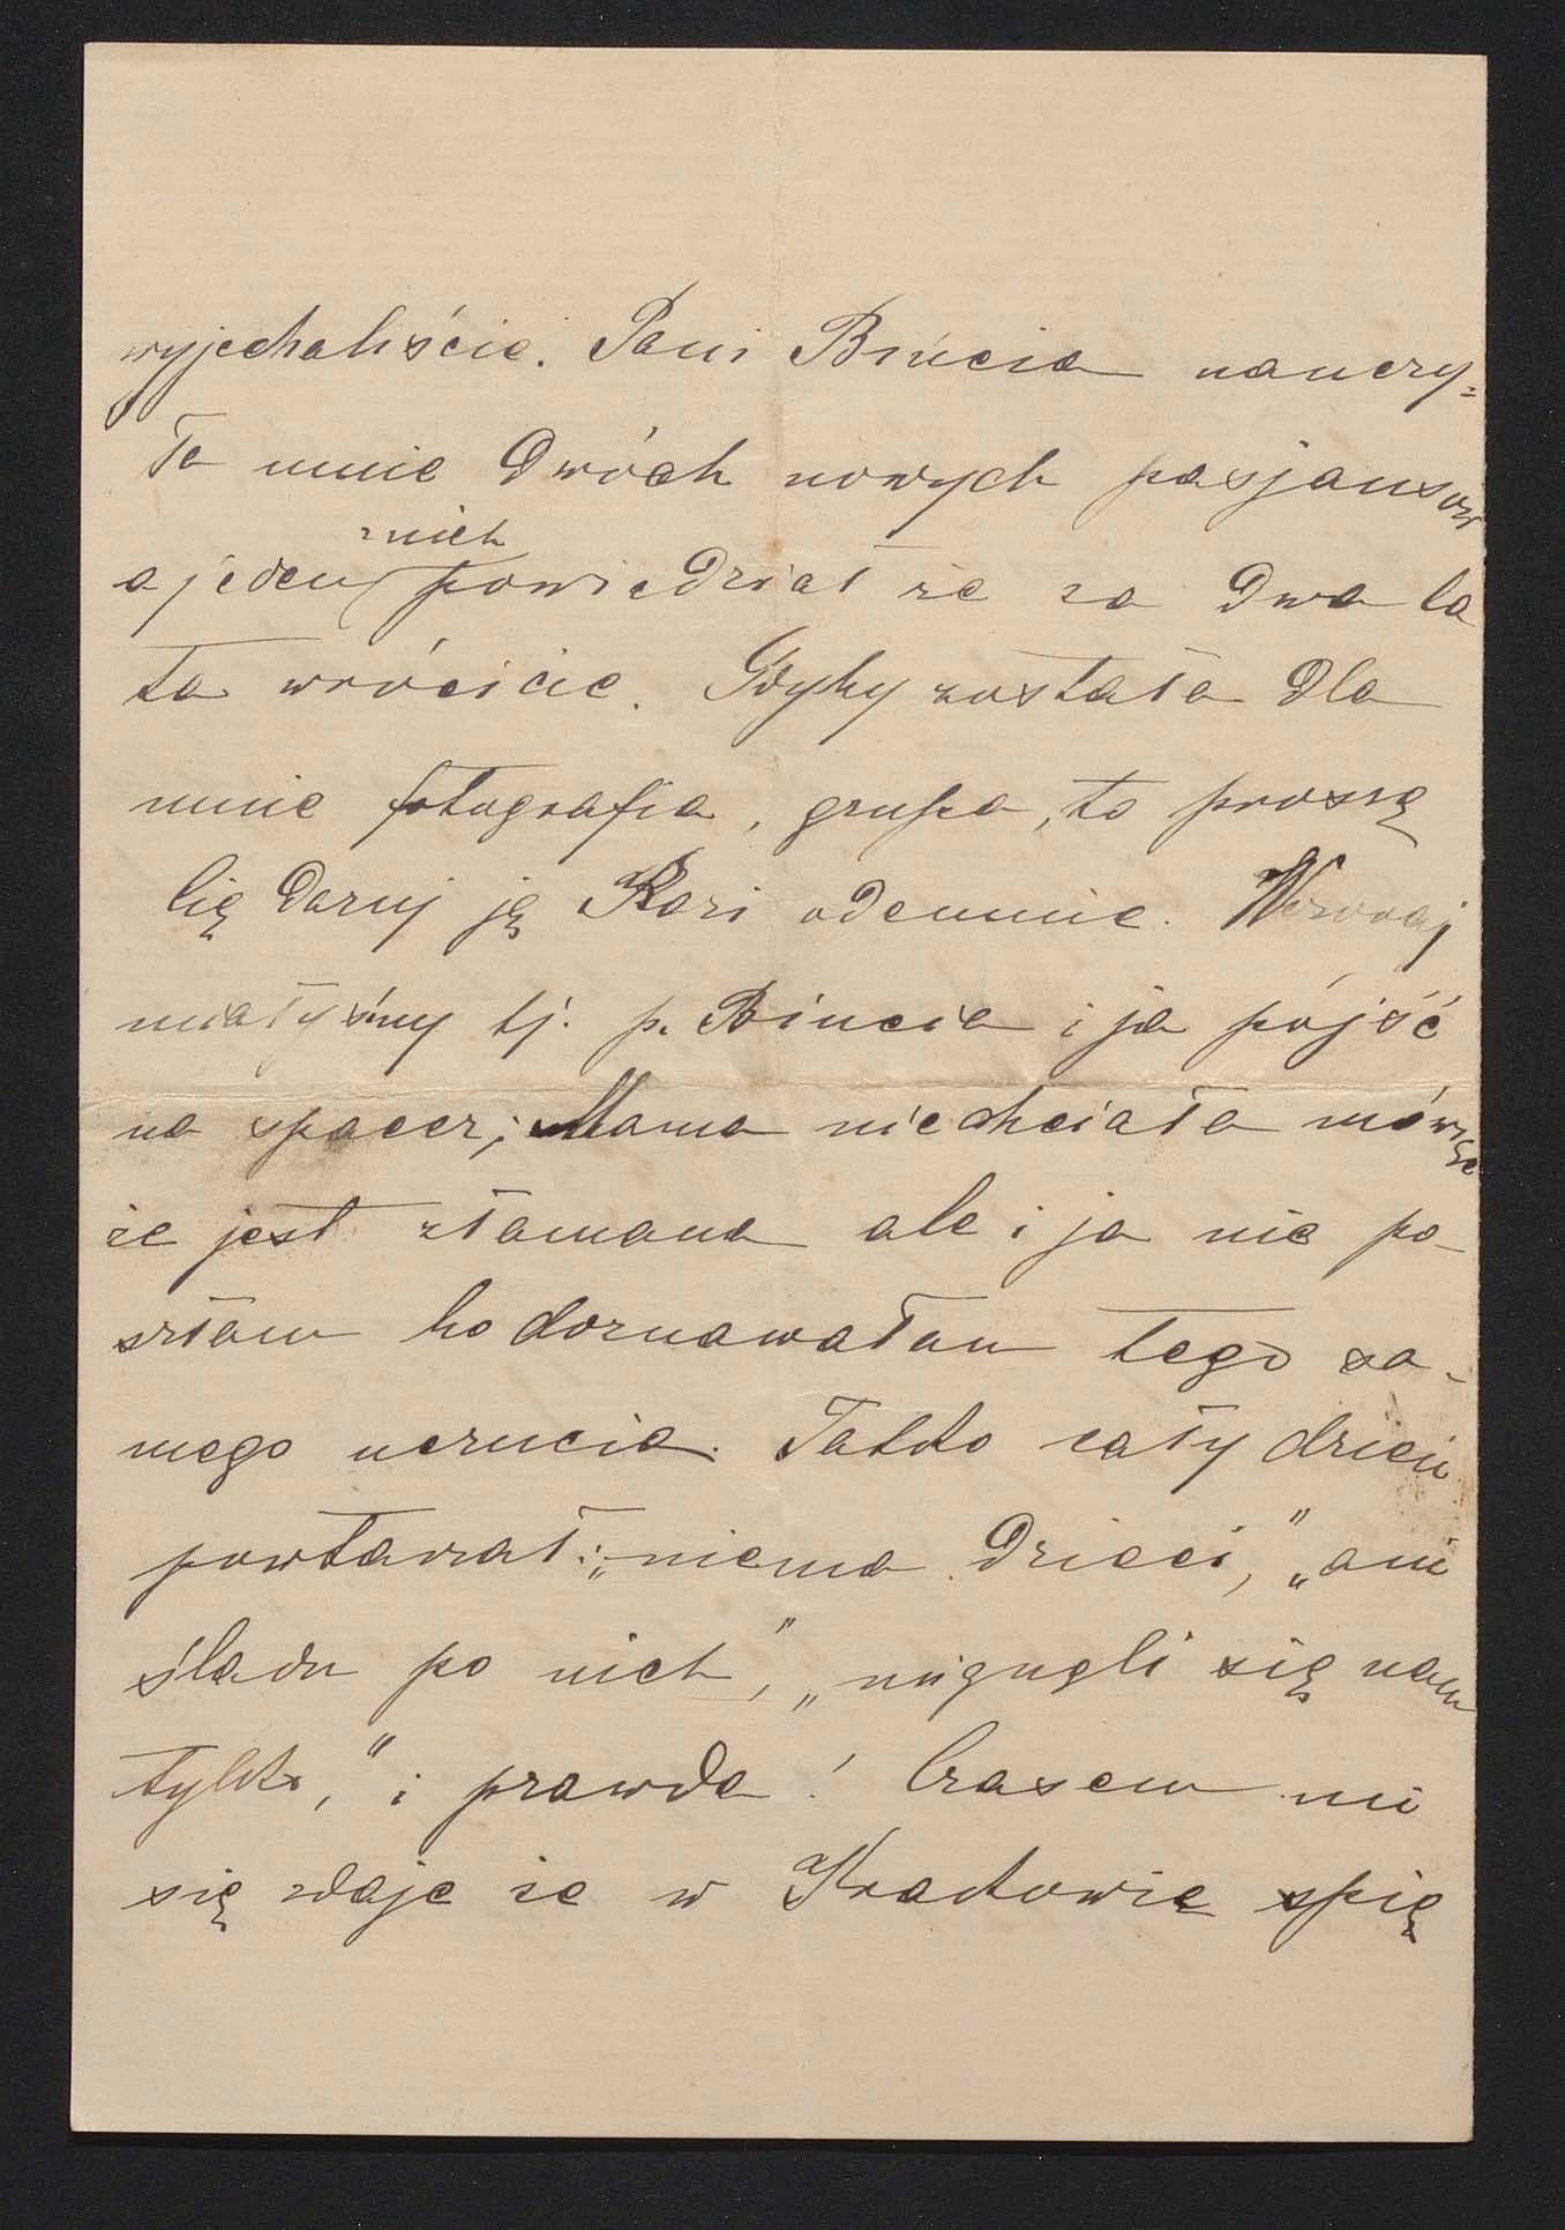 wyjechaliście. Pani Bincia nauczy=
ła mnie dwóch nowych pasjansów
z nich
a jeden powiedział że za dwa la
ta wrócicie. Gdyby została dla
mnie fotografia, grupa, to proszę
Cię daruj ją Kazi odemnie. Wczoraj
miałyśmy tj. p. Bincia i ja pójść
na spacer; Mama niechciała mówiąc
że jest złamana ale i ja nie po-
szłam bo doznawałam tego sa-
mego uczucia. Tatko cały dzień
powtarzał: „niema dzieci," „ani
śladu po nich," „mignęli się nam
tylko," i prawda! Czasem mi
się zdaje że w Krakowie śpię